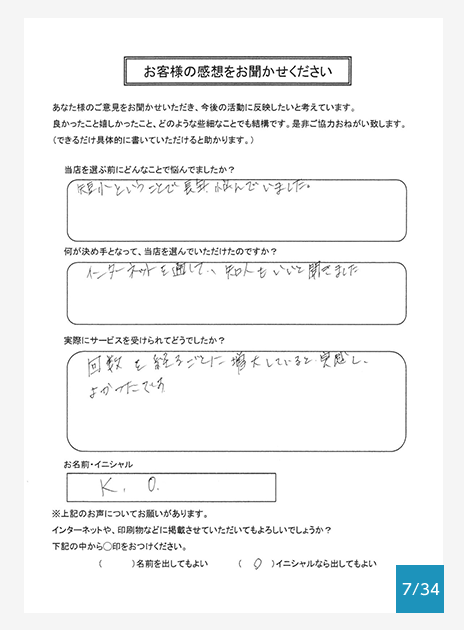 お客様の感想をお聞かせください
あなた様のご意見をお聞かせいただき、今後の活動に反映したいと考えています。
良かったこと嬉しかったこと、どのような些細なことでも結構です。是非ご協力おねがい致します。
（できるだけ具体的に書いていただけると助かります。）
当店を選ぶ前にどんなことで悩んでましたか？
短小ということで長年悩んでいました。
何が決め手となって、当店を選んでいただけたのですか？
インターネットを通して、知人もいいと聞きました
実際にサービスを受けられてどうでしたか？
回数を経るごとに増大していると実感し、
よかったです
お名前・イニシャル
K. O.
※上記のお声についてお願いがあります。
インターネットや、印刷物などに掲載させていただいてもよろしいでしょうか？
下記の中から〇印をおつけください。
（　　　）名前を出してもよい　　（　〇　）イニシャルなら出してもよい
7/34